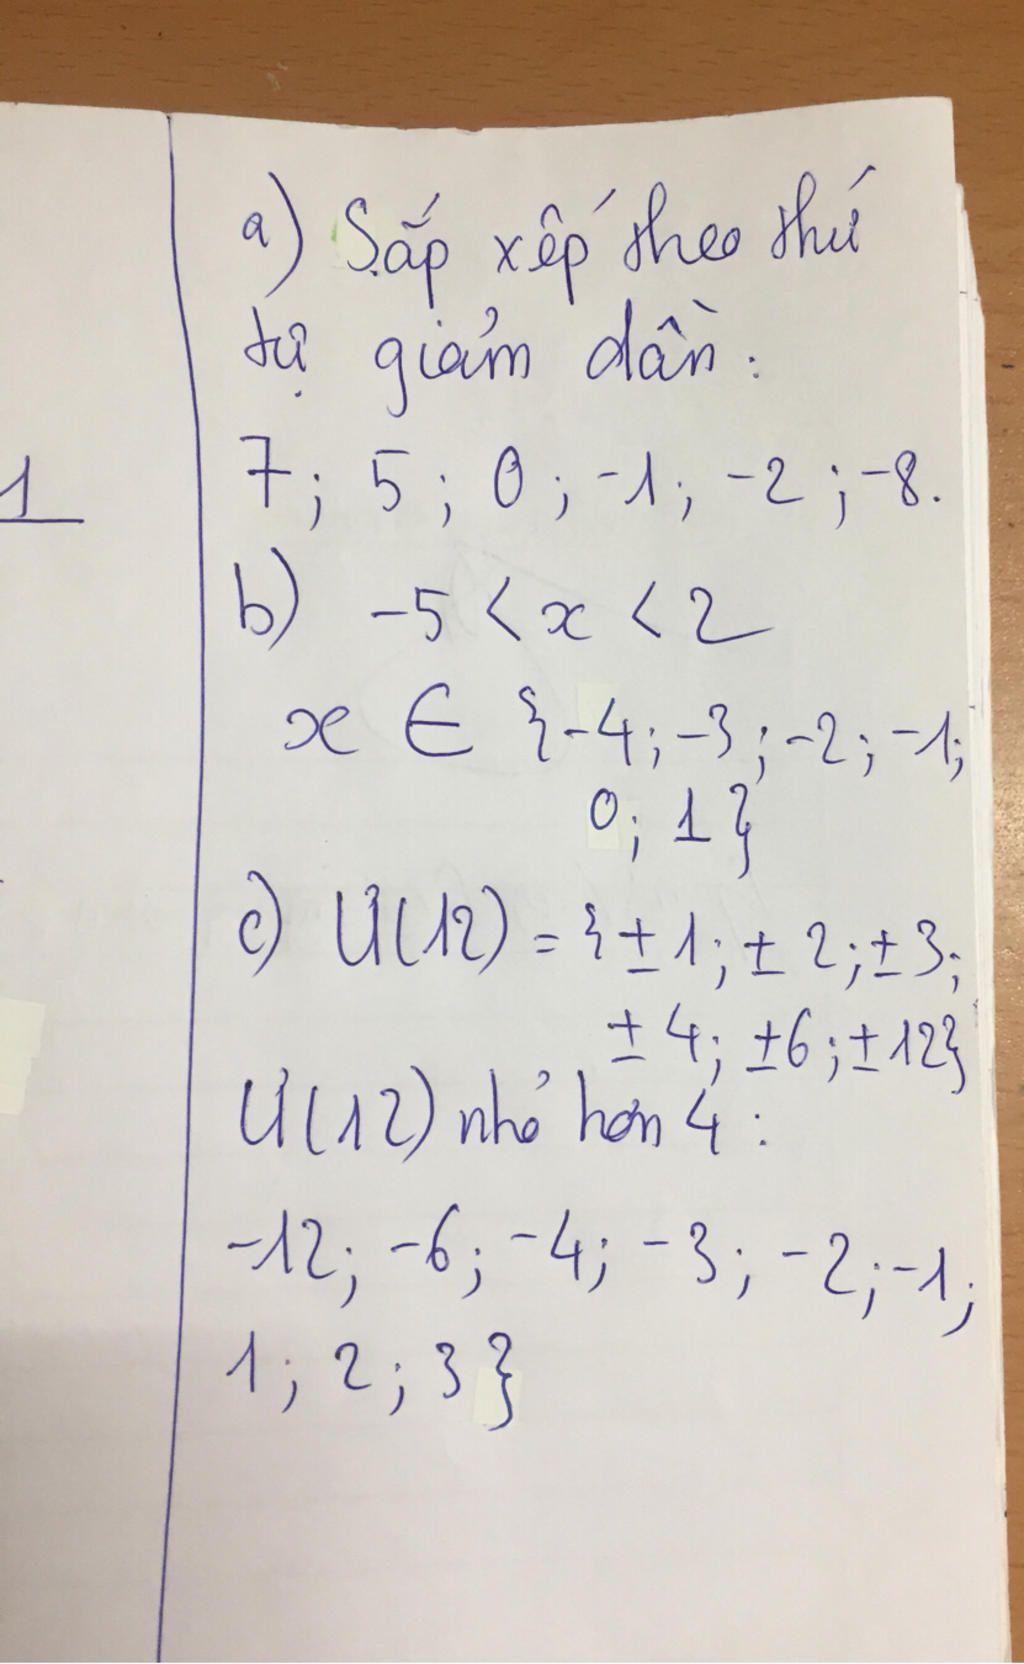 1
a) Sắp xếp theo thứ
tự giảm dần:
7; 5; 0; -1; -2; -8.
b) -5 < x < 2
x ∈ {-4; -3; -2; -1;
0; 1}
c) Ư(12) = {±1; ±2; ±3;
±4; ±6; ±12}
Ư(12) nhỏ hơn 4:
-12; -6; -4; -3; -2; -1;
1; 2; 3}